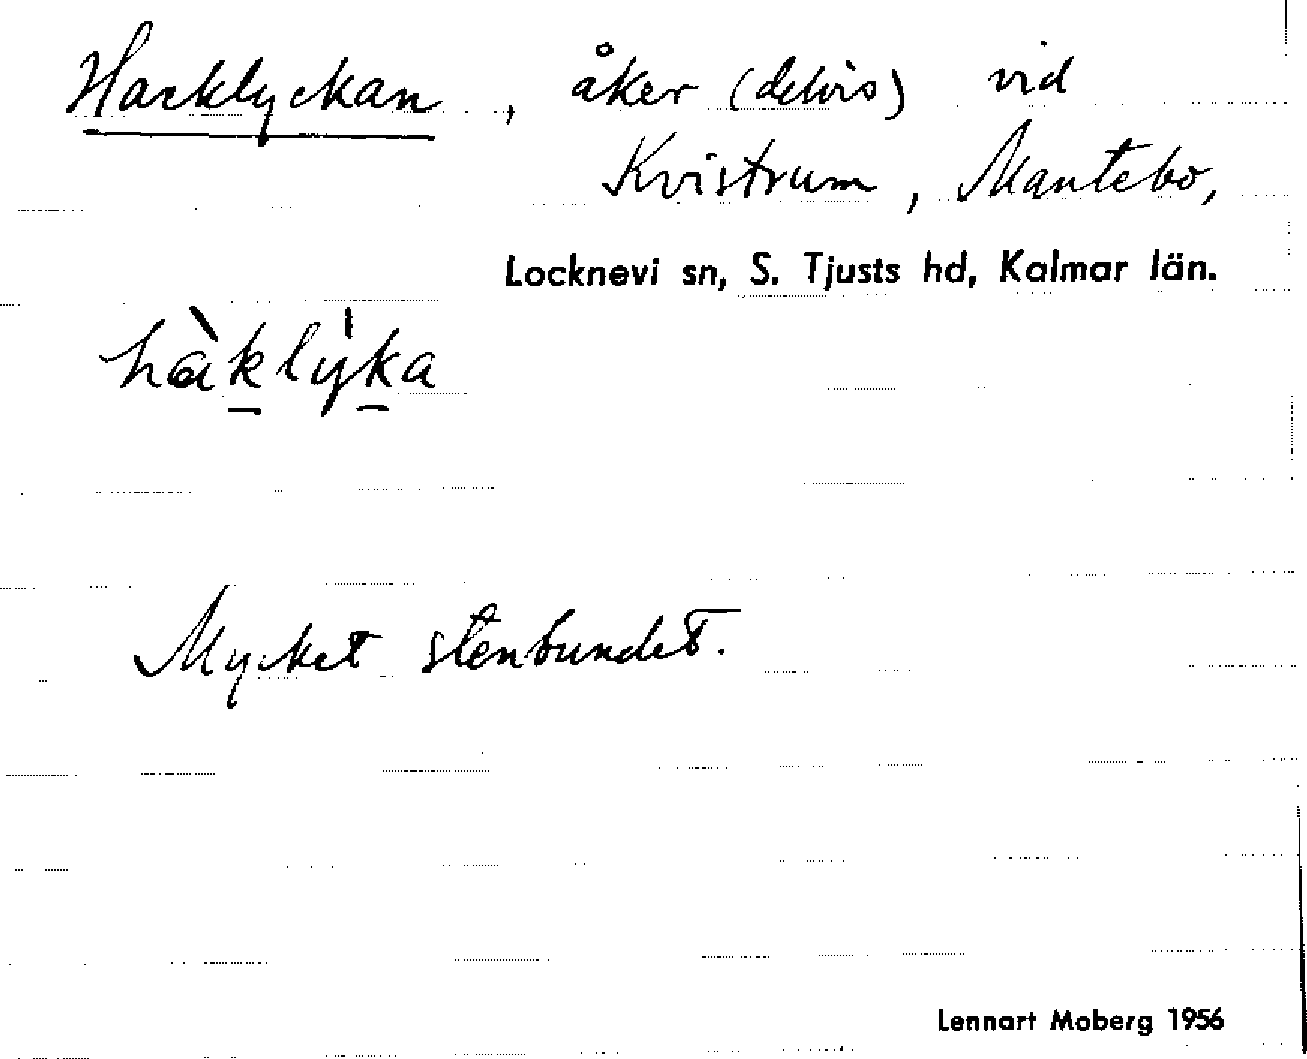 Hacklyckan, åker (delvis) vid
Kvistrum, Mantebo,
Locknevi sn, S. Tjusts hd, Kalmar län.
hàklýka
Mycket stenbundet.
Lennart Moberg 1956